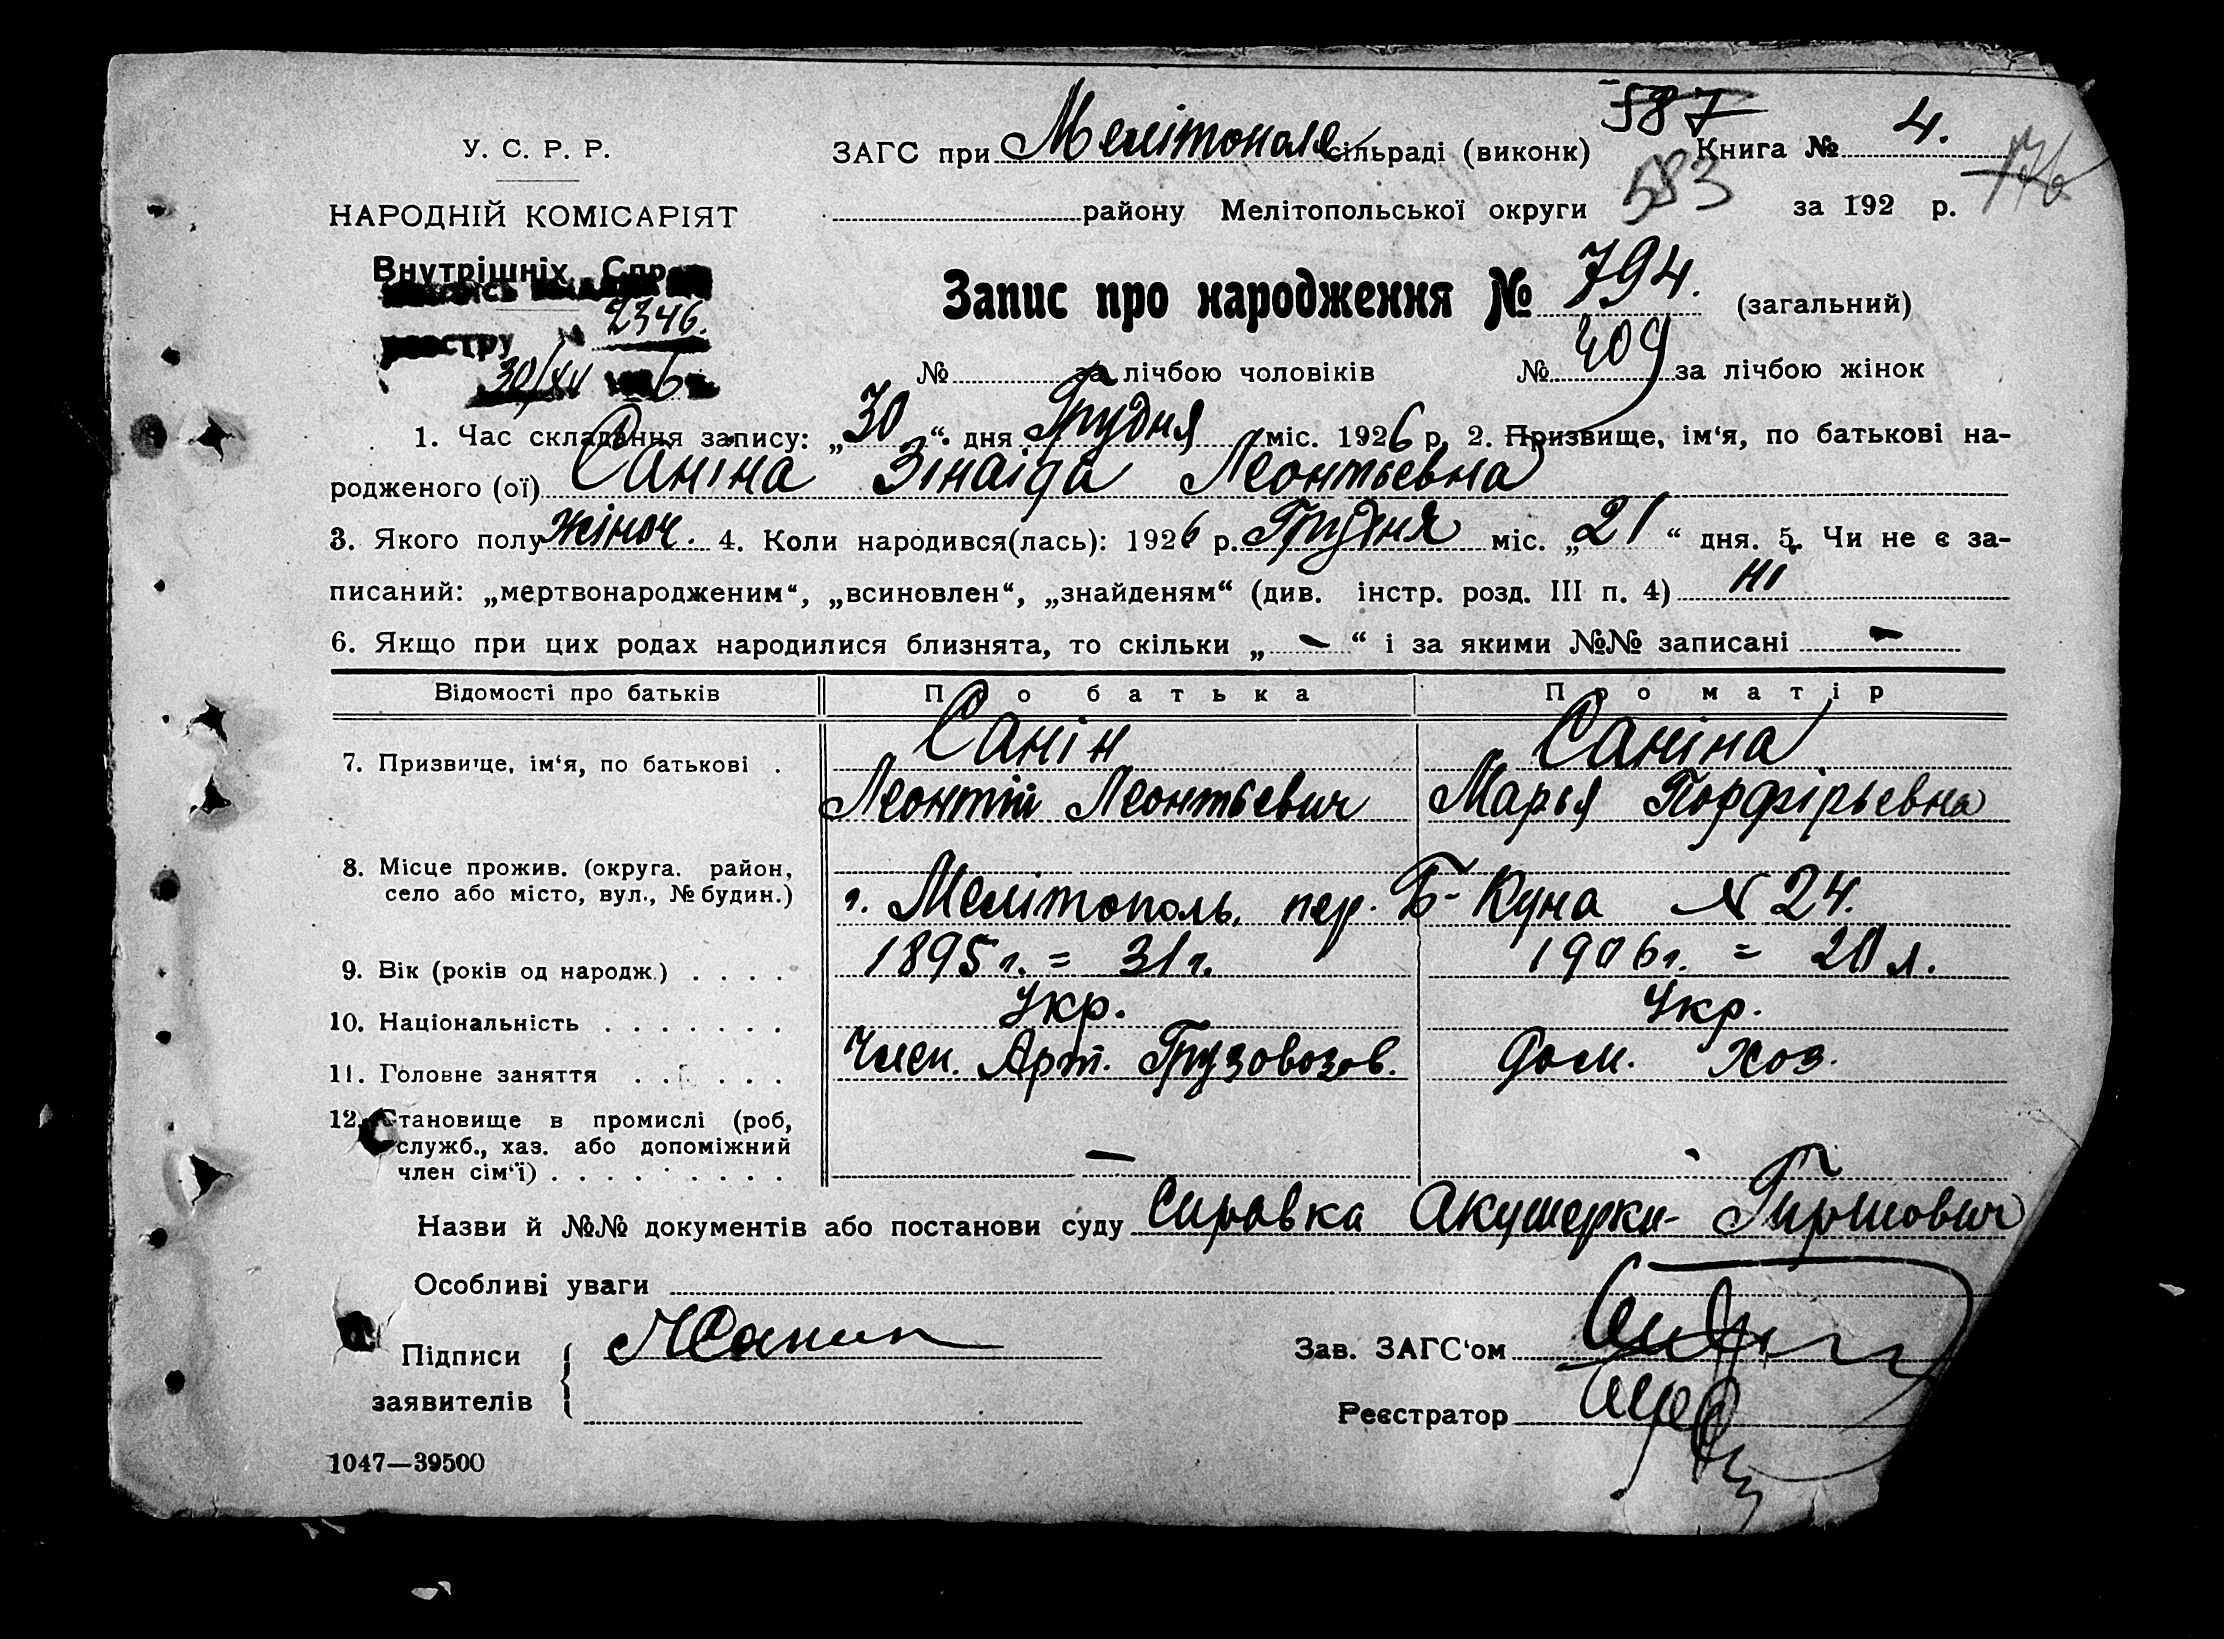 587
У. С. Р. Р.
ЗАГС при Мелітополе сільраді (виконк) Книга № 4.
583 176
НАРОДНІЙ КОМІСАРІЯТ
району Мелітопольської округи за 192 р.
Внутрішніх Спр
2346.
реєстру №
30/XII 6
Запис про народження № 794. (загальний)
№ за лічбою чоловіків № 409 за лічбою жінок
1. Час складання запису: „30“ дня Грудня міс. 1926 р. 2. Призвище, ім‘я, по батькові на-
родженого (ої) Саніна Зінаіда Леонтьевна
3. Якого полу жіноч. 4. Коли народився(лась): 1926 р. Грудня міс. „21“ дня. 5. Чи не є за-
писаний: „мертвонародженим“, „всиновлен“, „знайденям“ (див. інстр. розд. III п. 4) ні
6. Якщо при цих родах народилися близнята, то скільки „ – “ і за якими №№ записані –
Відомості про батьків Про батька Про матір
7. Призвище, ім‘я, по батькові . Санін Саніна
Леонтій Леонтьевич Марья Порфірьевна
8. Місце прожив. (округа. район,
село або місто, вул., № будин.) г. Мелітополь, пер. Б-Куна № 24.
9. Вік (років од народж.) . . . . 1895 г. = 31 г. 1906 г. = 20 л.
10. Національність . . . . . . . Укр. Укр.
11. Головне заняття . . . . . Член. Арт. Грузовозов. Дом. Хоз.
12. Становище в промислі (роб,
служб., хаз. або допоміжний
член сім‘ї) . . . . . . . . –
Назви й №№ документів або постанови суду Справка Акушерки Гиршович
Особливі уваги
Підписи Санин Зав. ЗАГС‘ом
заявителів
Реєстратор
1047—39500